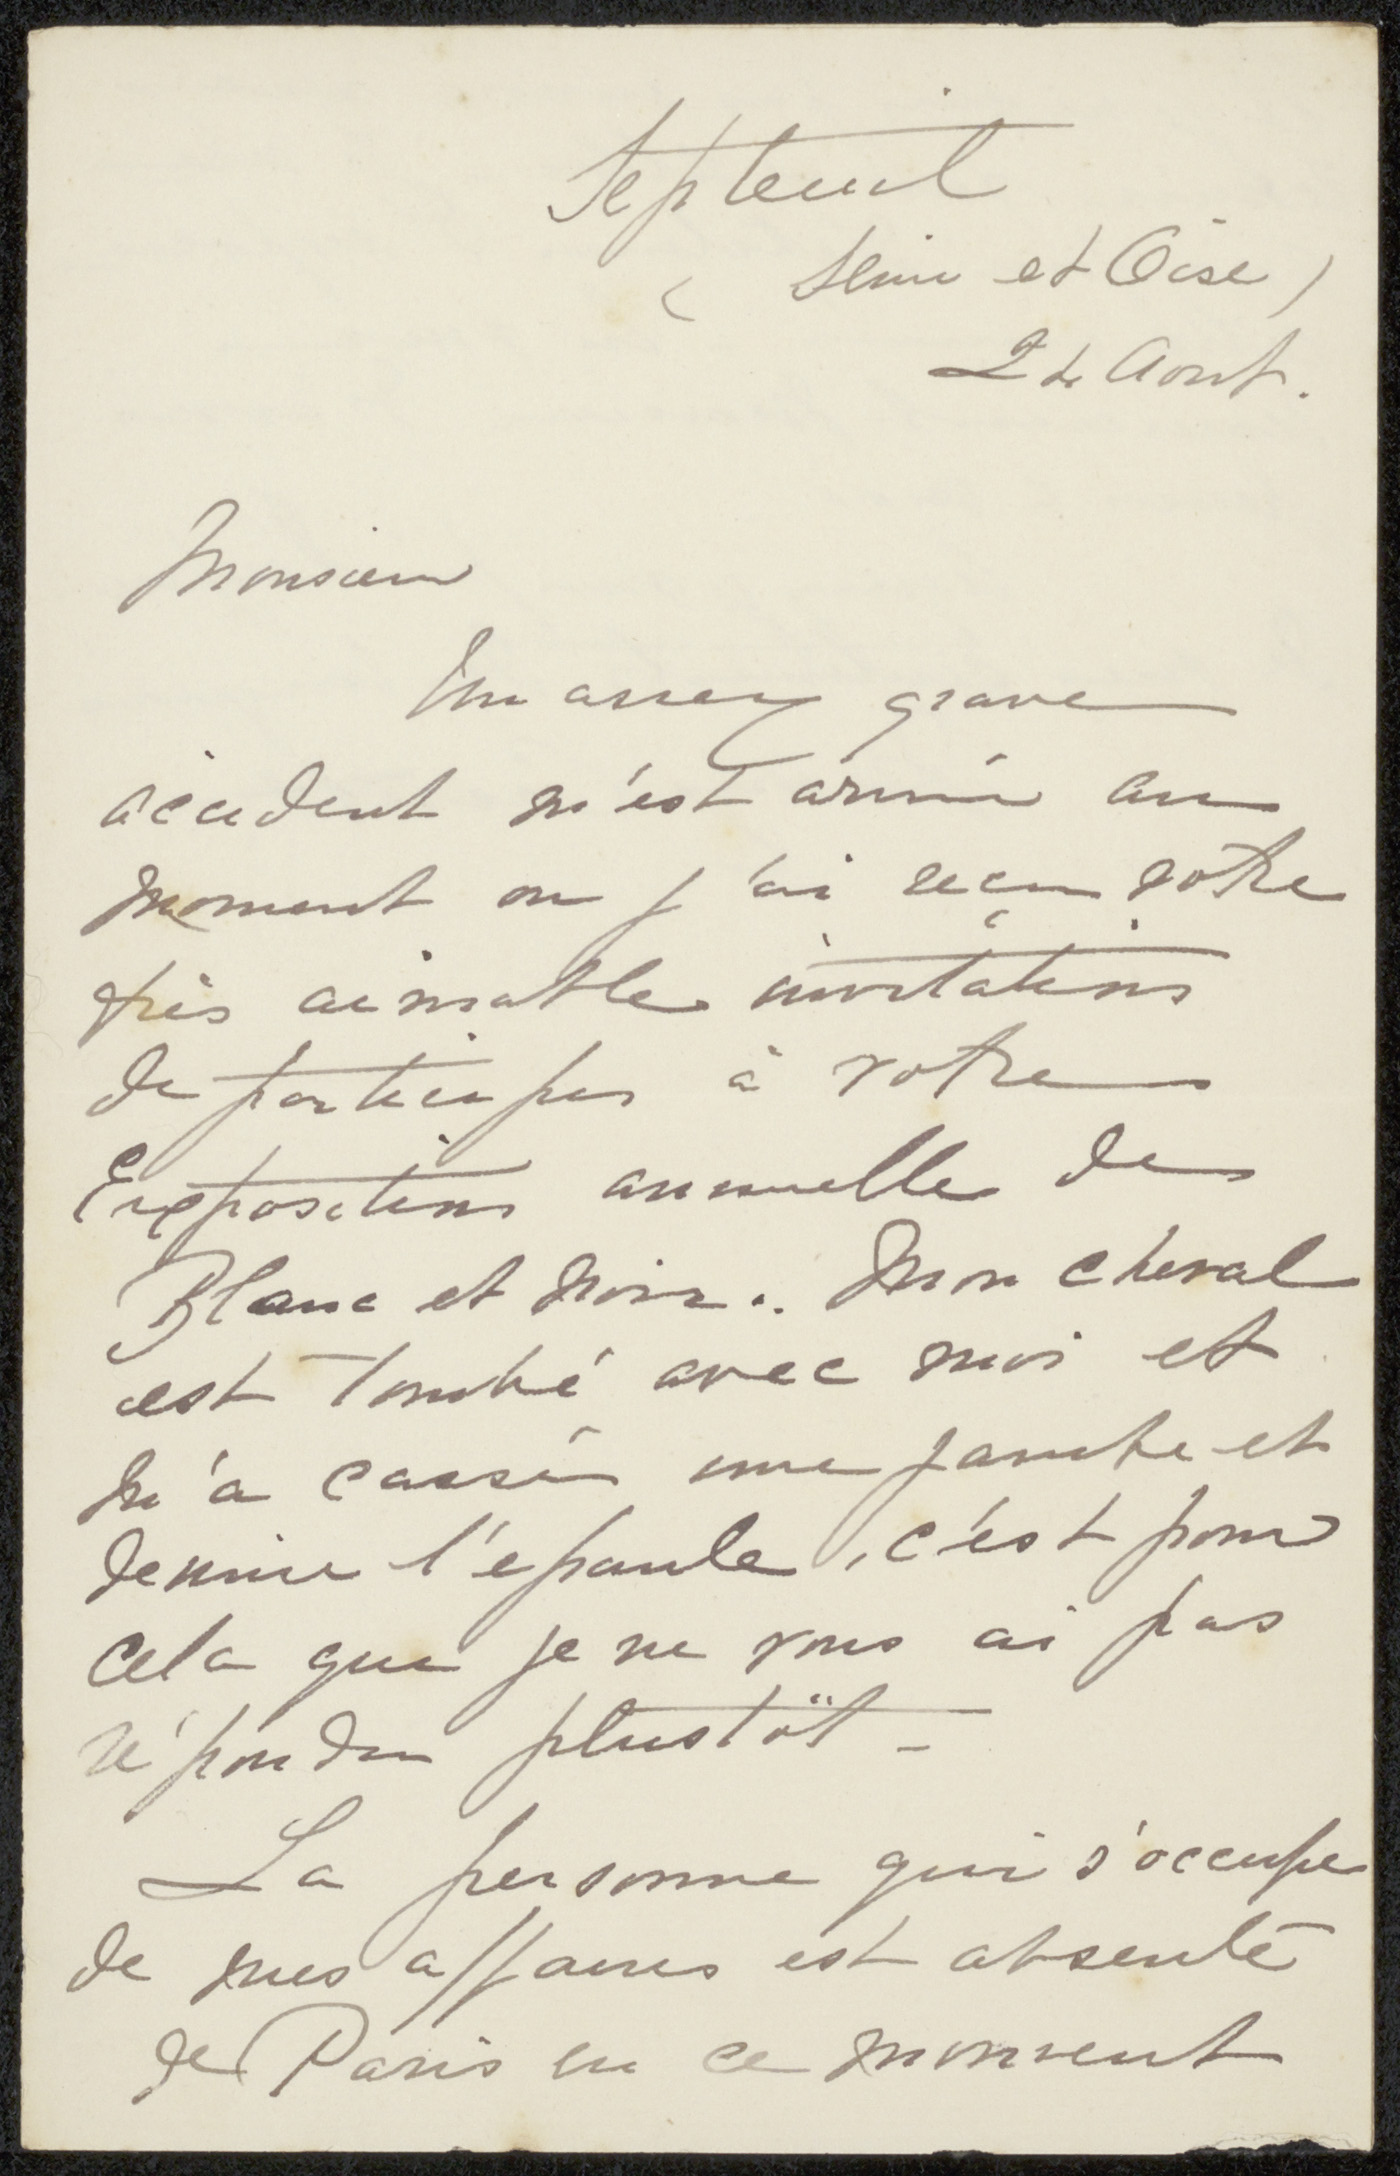 Septeuil
( Seine et Oise )
2 de Aout.
Monsieur
Un assez grave
accident m'est arrivé au
moment ou j'ai reçu votre
très aimable invitations
de participer à votre
Expositions annuelle de
Blanc et Noir.. Mon cheval
est tombé avec moi et
m'a cassé une jambe et
demie l'epaule, c'est pour
cela que je ne vous ai pas
répondu plustôt -
La personne qui s'occupe
de mes affaires est absente
de Paris en ce moment